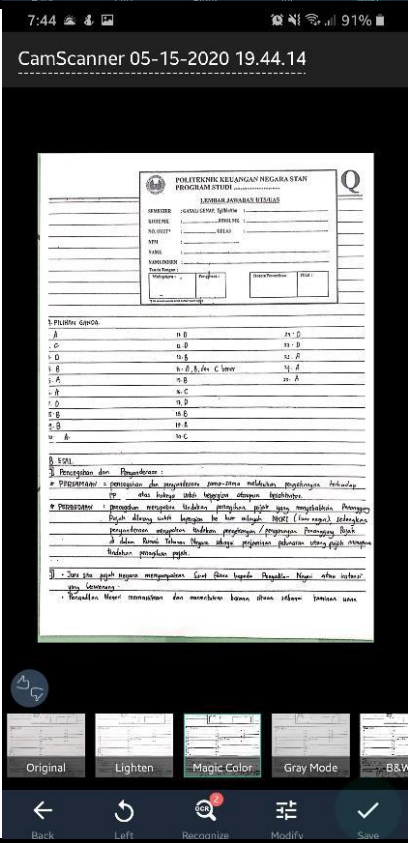 7:44
91%
CamScanner 05-15-2020 19.44.14
Q
POLITEKNIK KEUANGAN NEGARA STAN
PROGRAM STUDI ....................
LEMBAR JAWABAN UTS/UAS
SEMESTER
KODE MK
KELAS
NPM
NAMA
Tanda Tangan :
Mahasiswa :
Pengawas :
Nilai :
A. PILIHAN GANDA.
A
11. B
21. D
12. D
D
13. B
22. A
B
14. A, B, dan C benar
24. A
5. A
15. B
25. A
A
16. C
D
17. D
8. B
18. B
9. B
19. A
10 A.
20. C
B. ESAI.
1] Pencegahan dan Penyanderaan :
* PERSAMAAN : pencegahan dan penyanderaan sama-sama melakukan pengekangan terhadap
PP atas haknya untuk bepergian ataupun beraktivitas.
* PERBEDAAN : pencegahan merupakan tindakan penagihan pajak yang menyebabkan Penanggung
Pajak dilarang untuk bepergian ke luar wilayah NKRI (luar negeri), sedangkan
penyanderaan merupakan tindakan pengekangan / pengurungan Penanggung Pajak
di dalam Rumah Tahanan Negara sebagai perjanjian pelunasan utang pajak
tindakan penagihan pajak.
2] • Juru sita pajak negara menyampaikan Surat kepada Pengadilan Negeri atau instansi
yang berwenang.
• Pengadilan Negeri menetapkan dan menentukan barang sitaan sebagai jaminan
Original
Lighten
Magic Color
Gray Mode
B&W
OCR
2
Back
Left
Recognize
Modify
Save